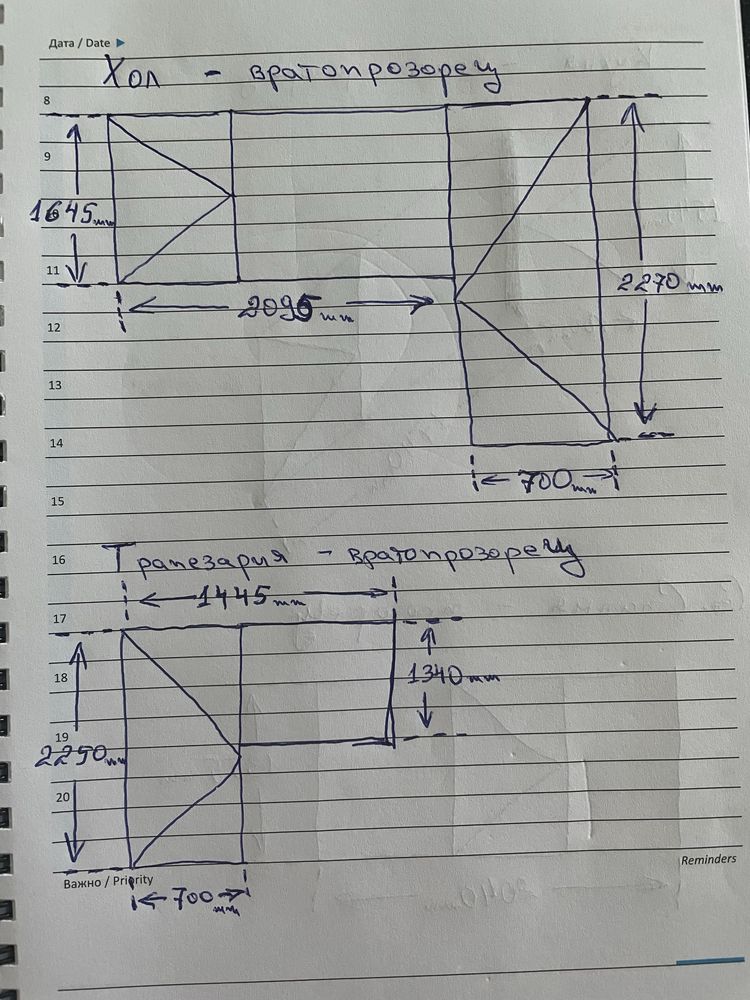 Дата / Date ▶
Хол - вратопрозорец
8
9
1645mm
11
2095mm
2270 mm
12
13
14
700mm
15
16
Трапезария - вратопрозорец
1445mm
17
18
1340mm
19
2250mm
20
Reminders
Важно / Priority
700
mm